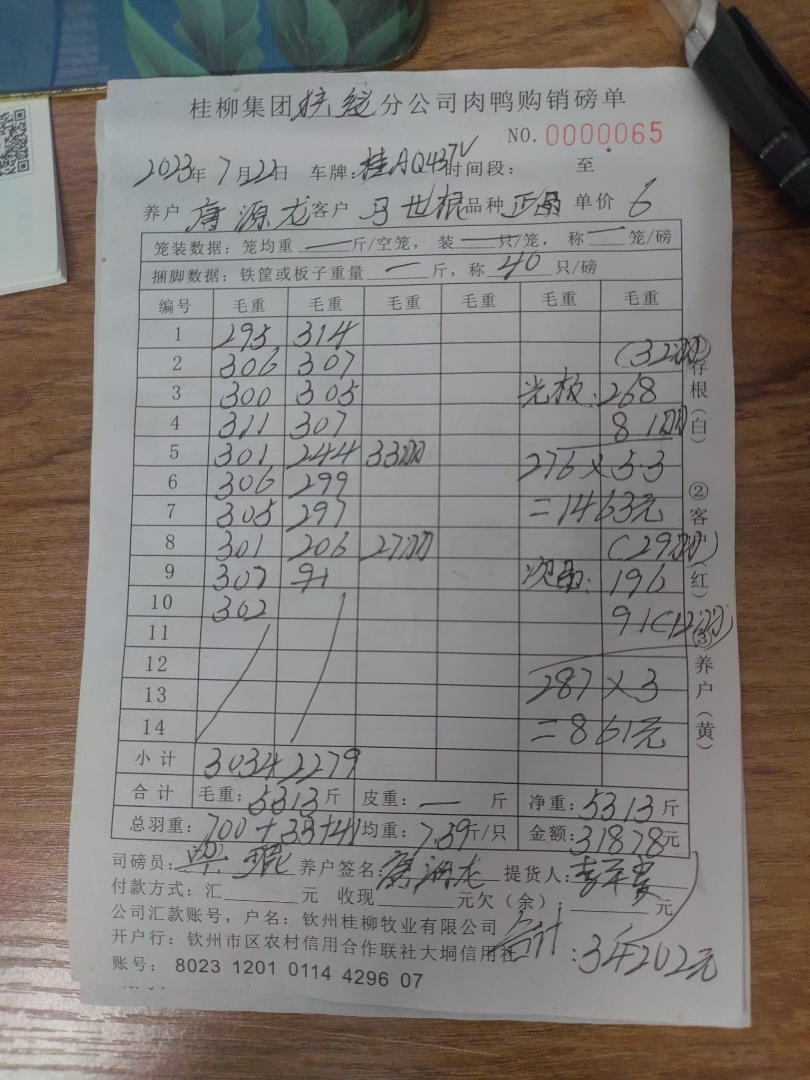 桂柳集团 分公司肉鸭购销磅单
NO. 0000065
2023年 7月22日 车牌:桂AQ437V 时间段: 至
养户 唐源龙 客户 马世根 品种 正品 单价 6
笼装数据: 笼均重 — 斤/空笼, 装 — 只/笼, 称 — 笼/磅
捆脚数据: 铁筐或板子重量 — 斤, 称 40 只/磅
编号 毛重 毛重 毛重 毛重 毛重 毛重
1 295 314
2 306 307 (32羽)
3 300 305 光板: 268
4 311 307 8 1羽
5 301 244 33羽 276×5.3
6 306 299
7 305 297 =1463元
8 301 206 27羽 (29羽)
9 307 91 次品: 196
10 302 91(12羽)
11
12
13 287×3
14 =861元
小计 3034 2279
合计 毛重: 5313 斤 皮重: — 斤 净重: 5313 斤
总羽重: 700+33+41 均重: 7.39 斤/只 金额: 31878元
司磅员: 养户签名: 唐源龙 提货人:
付款方式: 汇 元 收现 元欠(余): 元
公司汇款账号, 户名: 钦州桂柳牧业有限公司
开户行: 钦州市区农村信用合作联社大垌信用社 合计: 34202元
账号: 8023 1201 0114 4296 07
①存根(白) ②客户(红) ③养户(黄)